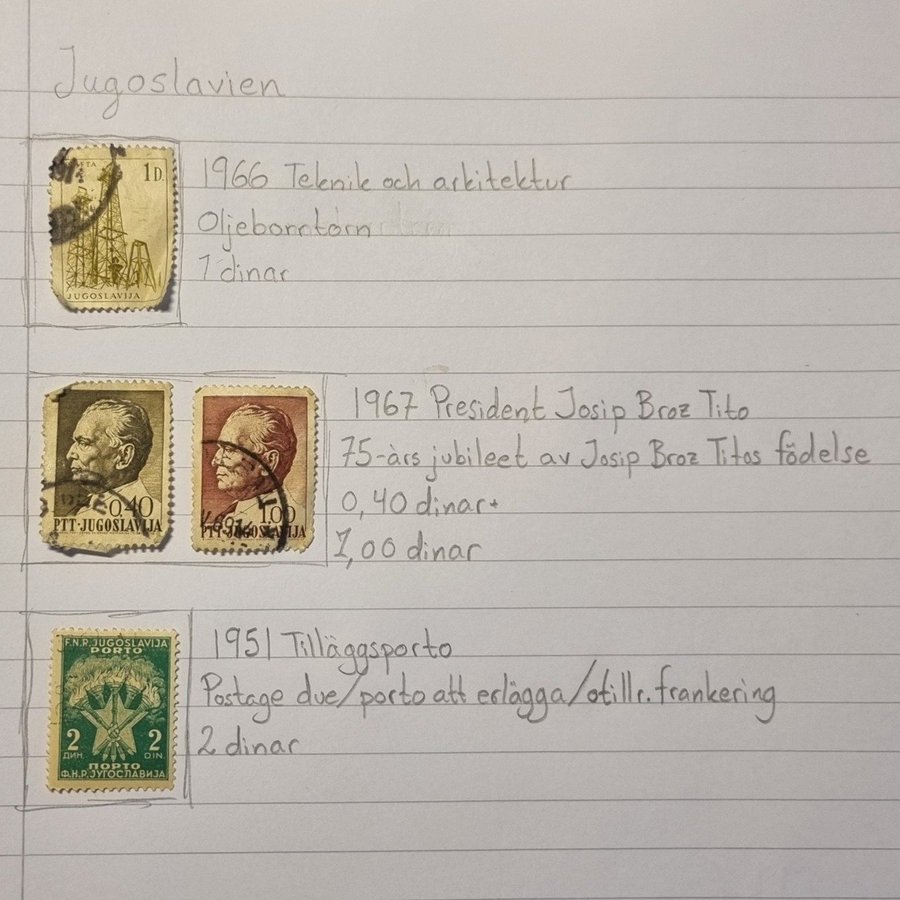 Jugoslavien
1D.
JUGOSLAVIJA
1966 Teknik och arkitektur
Oljeborrtorn
1 dinar
0.40
PTT·JUGOSLAVIJA
1.00
PTT·JUGOSLAVIJA
1967 President Josip Broz Tito
75-års jubileet av Josip Broz Titos födelse
0,40 dinar+
1,00 dinar
F.N.R.JUGOSLAVIJA
PORTO
2 2
ДИН. DIN.
ПОРТО
Ф.Н.Р.ЈУГОСЛАВИЈА
1951 Tilläggsporto
Postage due/porto att erlägga/otillr. frankering
2 dinar